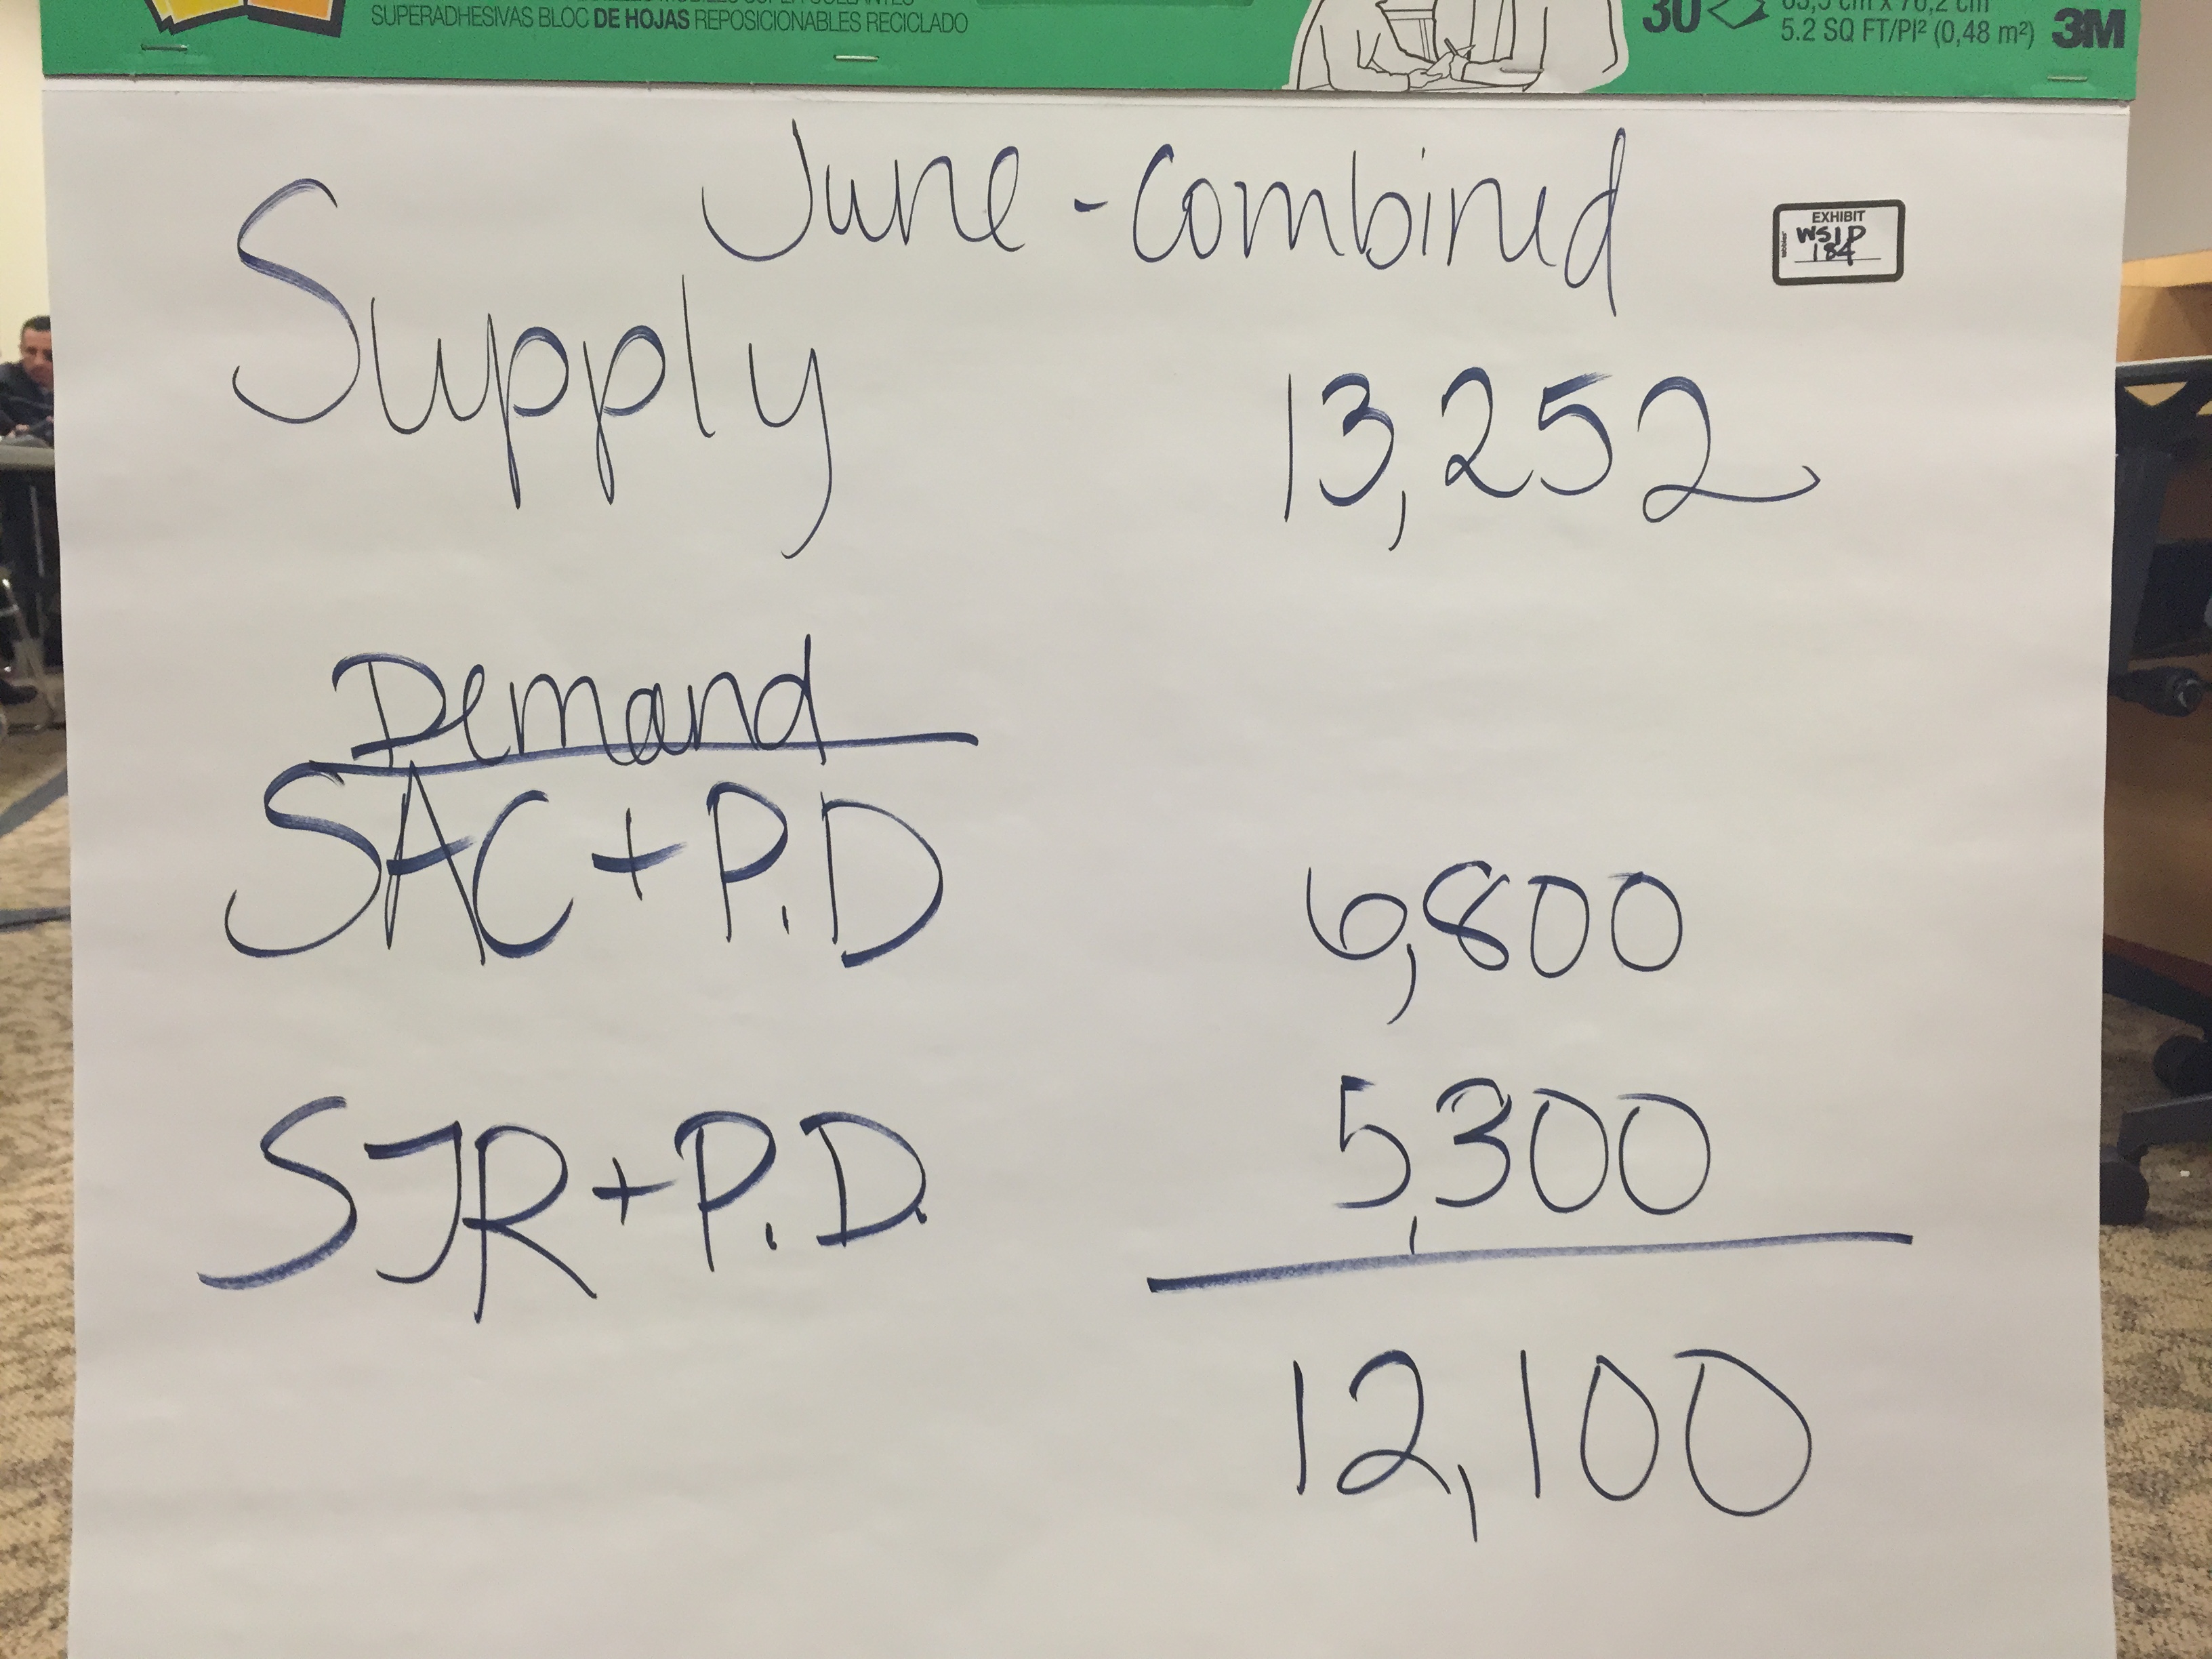 SUPERADHESIVAS BLOC DE HOJAS REPOSICIONABLES RECICLADO
30
5.2 SQ FT/PI² (0,48 m²)
3M
June - Combined
EXHIBIT
WSID
184
Supply 13,252
Demand
SAC + P.D 6,800
SJR + P.D. 5,300
12,100